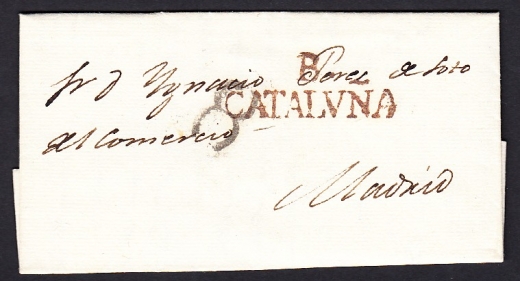 Sr D Ygnacio Perez de Soto
B L
CATALVNA
8
del Comercio
Madrid